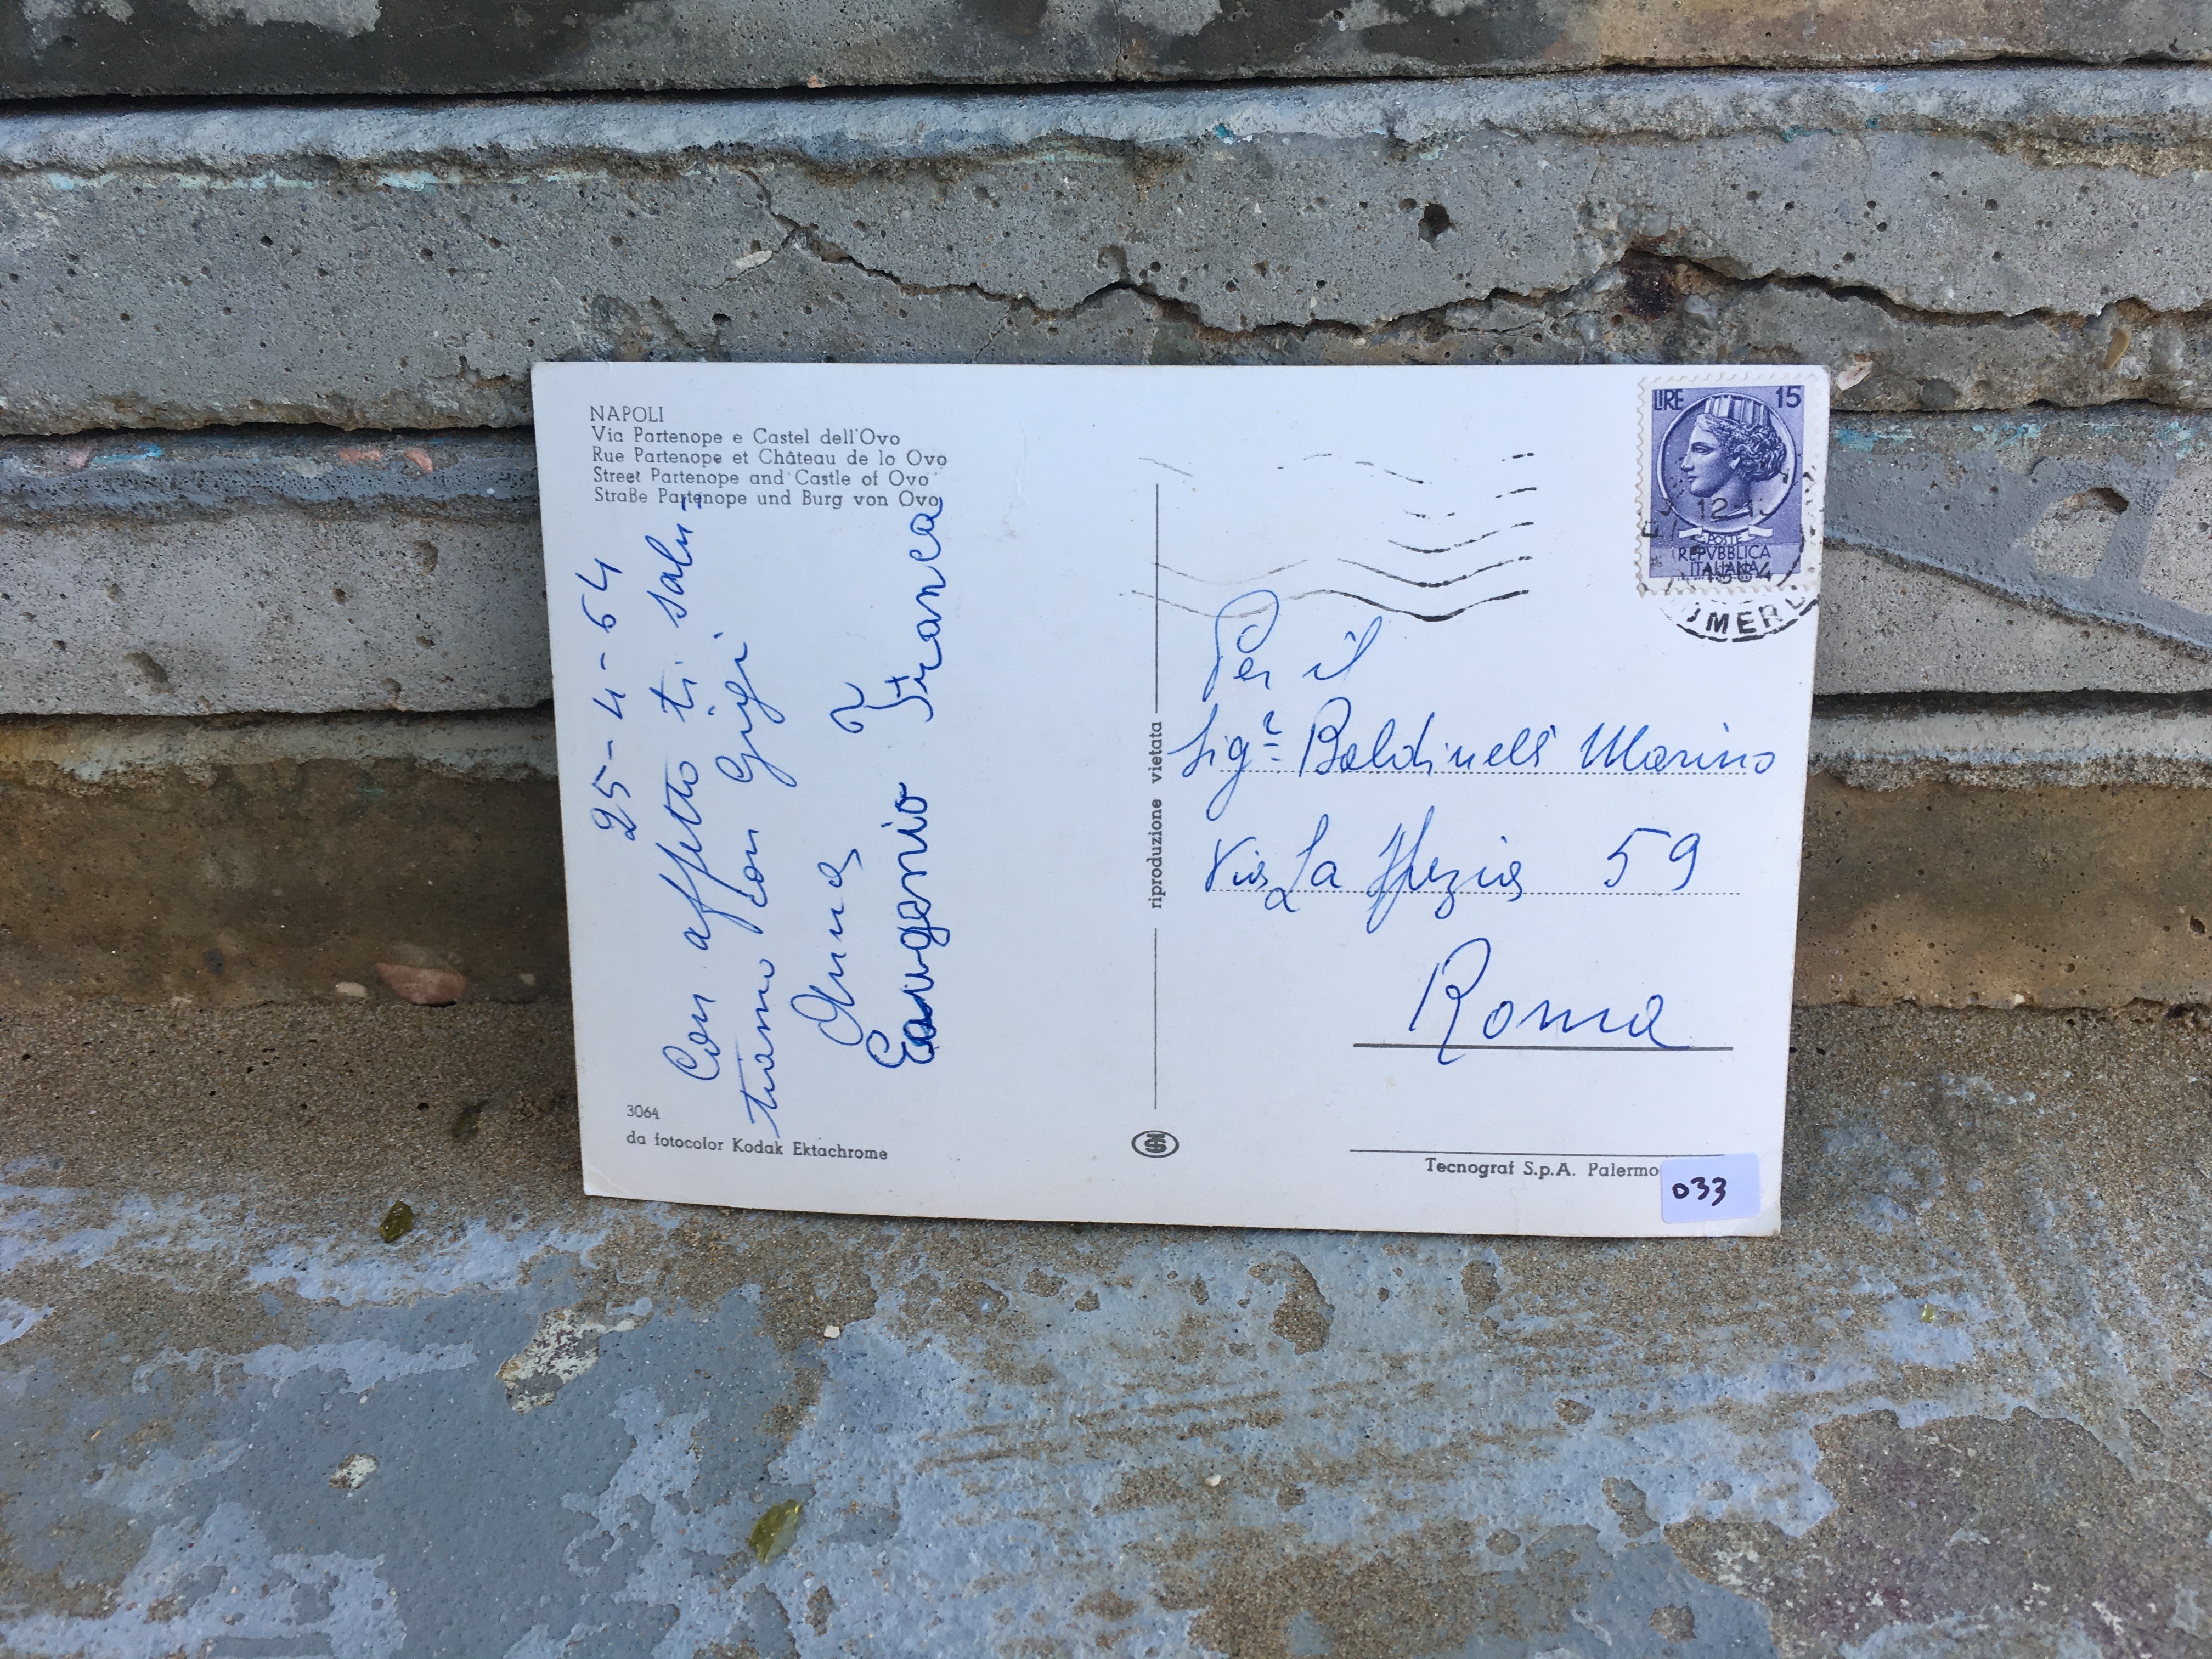 NAPOLI
Via Partenope e Castel dell'Ovo
Rue Partenope et Château de lo Ovo
Street Partenope and Castle of Ovo
Straße Partenope und Burg von Ovo
25-4-64
Con affetto ti salu-
tiamo con Gigi
Anna
Eugenio Franca
3064
da fotocolor Kodak Ektachrome
riproduzione vietata
LIRE 15
POSTE
REPVBBLICA
ITALIANA
12
1964
Per il
Sigr= Baldinelli Marino
Via La Spezia 59
Roma
Tecnograf S.p.A. Palermo
033